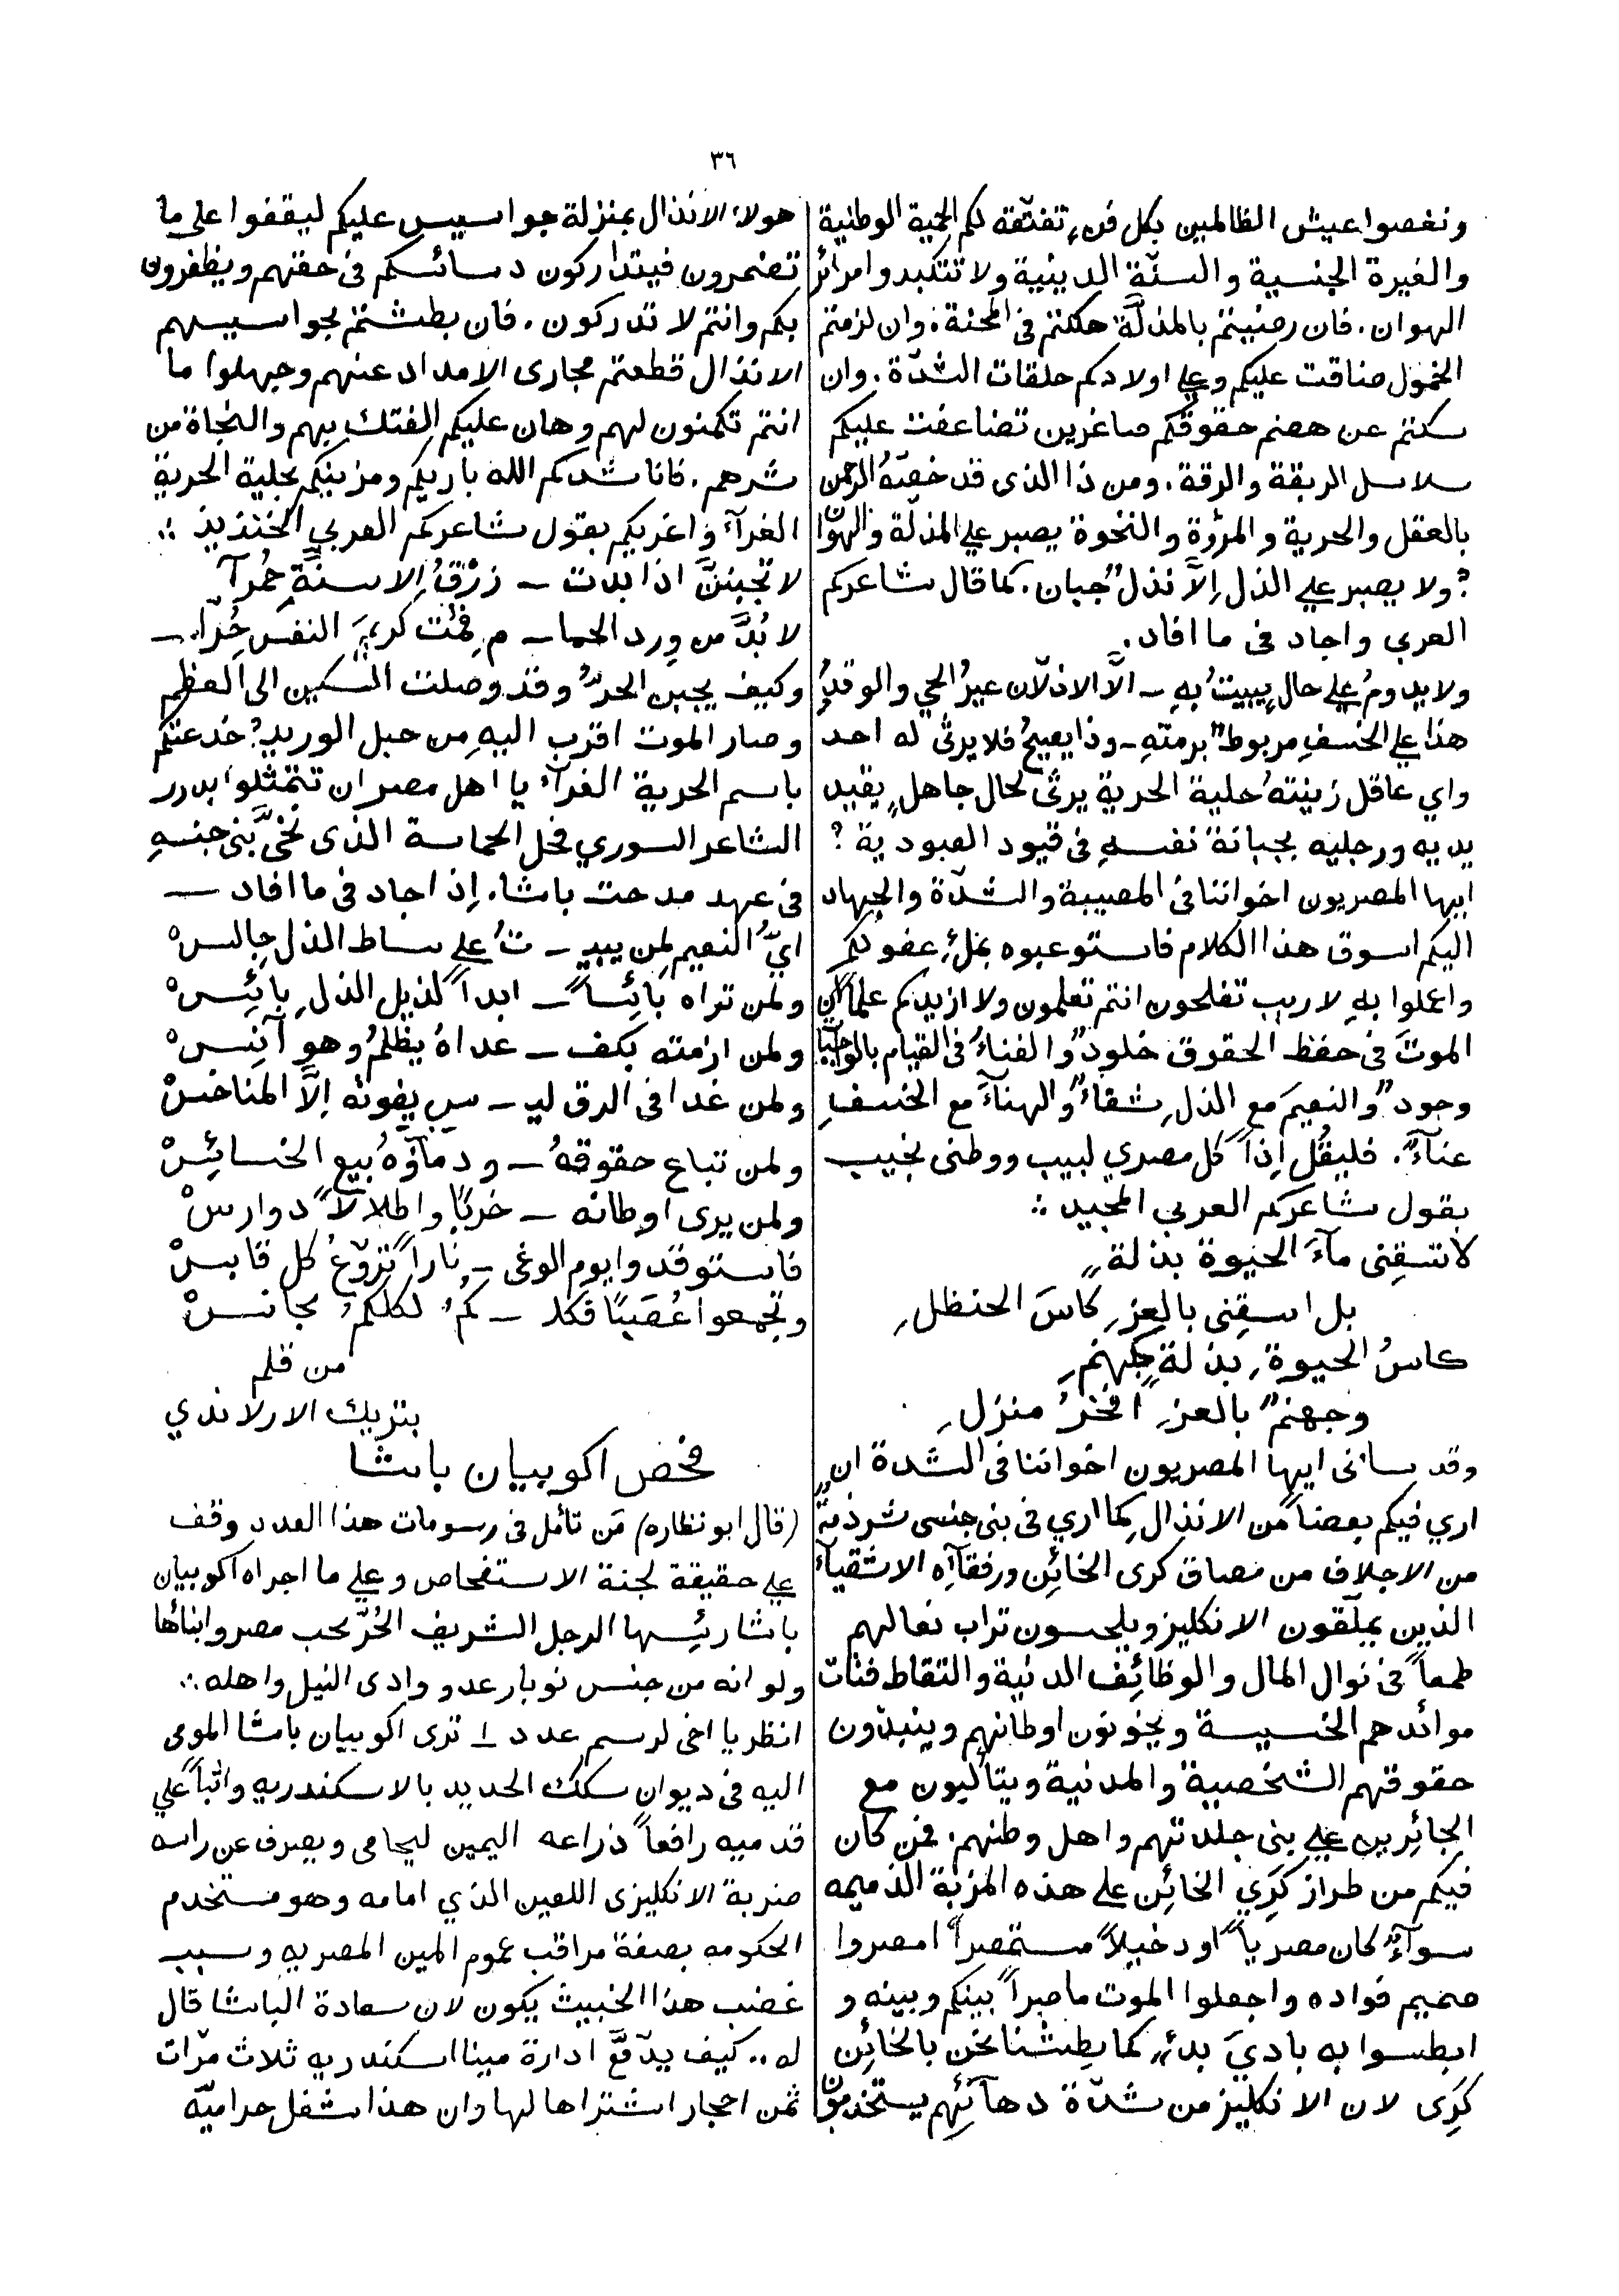 ٣٦
ونغصوا عيش الظالمين بكل فنٍ تفتّقه لكم الحمية الوطنية
والغيرة الجنسية والسنّة الدينية ولا تتكبدوا مرائر
الهوان. فان رضيتم بالمذلَّة هلكتم فى المحنة. وان لزمتم
الخمول ضاقت عليكم وعلي اولادكم حلقات الشدّة. وان
سكتم عن هضم حقوقكم صاغرين تضاعفت عليكم
سلاسل الربقة والرقة. ومن ذا الذى قد خصّهُ الرحمن
بالعقل والحرية والمرؤة والنخوة يصبر علي المذلّة والهوان
? ولا يصبر علي الذل اِلاَّ نذلٌ جبان. كما قال شاعركم
العربي واجاد فى ما افاد.
ولا يدومُ علي حالٍ يبيتُ بهِ – الاّ الاذلّان عيرُ الحي والوتدُ
هذا علي الخسفِ مربوطٌ برمتهِ – وذا يصيحُ فلا يرثى له احد
واي عاقل زينتهُ حلية الحرية يرثى لحال جاهلٍ يقيد
يديه ورجليه بجبانة نفسهِ فى قيود العبودية ?
ايها المصريون اخواننا فى المصيبة والشدّة والجهاد
اليكم اسوق هذا الكلام فاستوعبوه بملءِ عقولكم
واعملوا بهِ لا ريب تفلحون انتم تعلمون ولا ازيدكم علماً ان
الموتَ فى حفظ الحقوق خلودٌ والفناءُ فى القيام بالواجبات
وجودٌ والنعيمَ مع الذلِ شقاءٌ والهناءَ مع الخسفِ
عناءٌ. فليقُل اِذاً كل مصري لبيب ووطنى نجيب
بقول شاعركم العربي المجيد ؞
لا تسقِنى ماءَ الحيوة بذلةٍ
بل اسقِنى بالعزِ كاسَ الحنظلِ
كاسُ الحيوةِ بذلةٍ كجهنمِ
وجهنمٌ بالعزِ افخرُ منزلِ
وقد ساءنى ايها المصريون اخواننا فى الشدة ان
اري فيكم بعضاً من الانذال كما اري فى بنى جنسى شرذمةً
من الاجلاف من مصاق كرى الخائِن ورفقاَئِه الاشقياَء
الذين يملّقون الانكليز ويلحسون تراب نعالهم
طمعاً فى نوال المال والوظائِف الدنية والتقاط فتات
موائدهم الخسيسة ويخونون اوطانهم وينبذون
حقوقهم الشخصية والمدنية ويتألبون مع
الجائِرين علي بنى جلدتهم واهل وطنهم. فمن كان
فيكم من طراز كَرِي الخائِن علي هذه المزيّة الذميمه
سواَءٌ كان مصرياً او دخيلاً مستمصراً امصروا
صميم فواده واجعلوا الموت ماصراً بينكم وبينه و
ابطسوا به باديَ بدءٍ كما بطشنا نحن بالخائِن
كَرَى لان الانكليز من شدّة دهاَئِهم يستخدمون
هولاء الانذال بمنزلة جواسيس عليكم ليقفوا على ما
تضمرون فيتداركون دسائسكم فى حقهم ويظفرون
بكم وانتم لا تدركون. فان بطشتم بجواسيسهم
الانذال قطعتم مجارى الامداد عنهم وجهلوا ما
انتم تكمنون لهم وهان عليكم الفتك بهم والنجاة من
شرهم. فانا شدكم الله باريكم ومزينكم بحلية الحرية
الغرآء واغريكم بقول شاعركم العربي الخنذيذ ؞
لا تجبننَّ اذا بدت – زرْقُ الاسنَّةِ حُمرآ
لا بُدَّ من وِرد الحما – م فمُت كريمَ النفس حُرّا –
وكيف يجبن الحرُّ وقد وصلت السّكين الى العظم
وصار الموت اقرب اليهِ من حبل الوريد? خدعتكم
باسم الحرية الغرآء يا اهل مصر ان تتمثلوا بدرر
الشاعر السوري فحل الحماسة الذى نخَّى بنى جنسهِ
فى عهد مدحت باشا. اِذ اجاد فى ما افاد –
ايُّ النعيم لمن يبيـ – ـتُ علي بساط الذل جالسْ
ولمن تراه بائِساً – ابداً لذيل الذلِ بائِسْ
ولمن ازمته بكف – عداهُ يظلمُ وهو آنِسْ
ولمن غدا فى الرق ليـ – ـس يفوتهُ اِلاَّ المناخسْ
ولمن تباع حقوقهُ – ودماَؤهُ بيع الخسائِسْ
ولمن يرى اوطانه – خرَبًا واطلالاً دوارسْ
فاستوقدوا يوم الوغى – ناراً تروّعُ كل قابسْ
وتجمعوا عُصَبًا فكلـ – ـكُم لكلكمُ مجانسْ
من قلم
بتريك الارلاندي
فحص اكوبيان باشا
(قال ابو نظاره) مَن تأمل فى رسومات هذا العدد وقف
علي حقيقة لجنة الاستفحاص وعلي ما اجراه اكوبيان
باشا رئِيسها الرجل الشريف الحُرّ محب مصر وابنائها
ولو انه من جنس نوبار عدو وادى النيل واهله ؞
انظر يا اخى لرسم عدد ١ ترى اكوبيان باشا المومى
اليه فى ديوان سكك الحديد بالاسكندريه واثباً علي
قدميه رافعاً ذراعه اليمين ليحامى ويصرف عن راسه
ضربة الانكليزى اللعين الذي امامه وهو مستخدم
الحكومه بصفة مراقب عموم المين المصريه وسبب
غضب هذا الخبيث يكون لان سعادة الباشا قال
له.. كيف يدفَّع ادارة مينا اسكندريه ثلاث مرّات
ثمن احجار اشتراها لها وان هذا شغل حراميّة